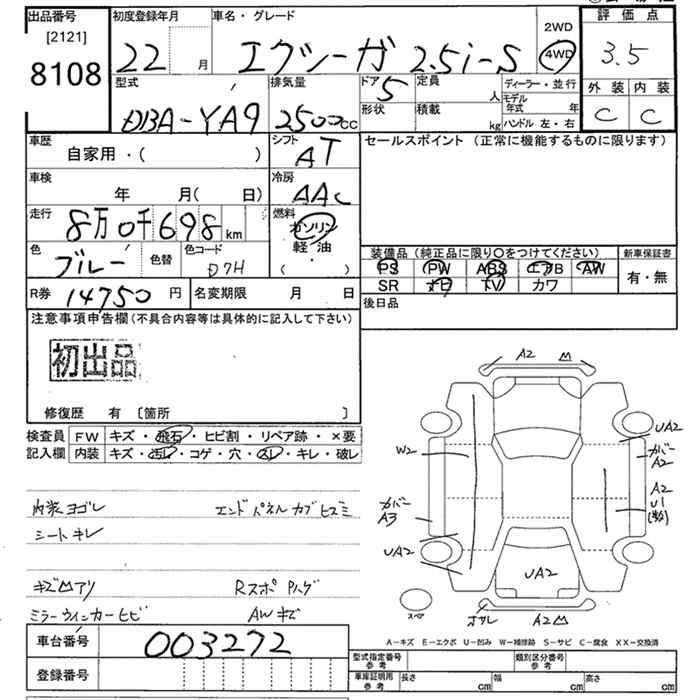 出品番号 初度登録年月 車名・グレード 2WD 評価点
[2121] 22 月 エクシーガ 2.5i-S 4WD 3.5
8108 型式 排気量 ドア 5 定員 人 ディーラー・並行 外装 内装
DBA-YA9 2500cc 形状 積載 kg モデル年式 年 C C
ハンドル 左・右
車歴 シフト セールスポイント (正常に機能するものに限ります)
自家用・( ) AT
車検 冷房
年 月( 日) AAC
走行 燃料
8万0千698km ガソリン
軽油
・
( )
色 ブルー 色替 色コード D7H 装備品 (純正品に限り○をつけてください) 新車保証書
PS PW ABS エアB AW 有・無
R券 14750円 名変期限 月 日 SR ナビ TV カワ
後日品
注意事項申告欄(不具合内容等は具体的に記入して下さい)
初出品
修復歴 有 [箇所 ]
検査員 FW キズ・飛石・ヒビ割・リペア跡・×要
記入欄 内装 キズ・汚レ・コゲ・穴・スレ・キレ・破レ
内装ヨゴレ エンドパネルカブヒズミ
シートキレ
キズ凹アリ
ミラーウインカーヒビ AWキズ
A2 凹
UA2
W2 カバー A2
A2
U1
カバー A3
UA2
UA2
A2 凹
A-キズ E-エクボ U-凹み W-補修跡 S-サビ C-腐食 XX-交換済
車台番号 003272
登録番号
型式指定番号 参考 類別区分番号 参考
車庫証明用 参考 長さ cm 幅 cm 高さ cm